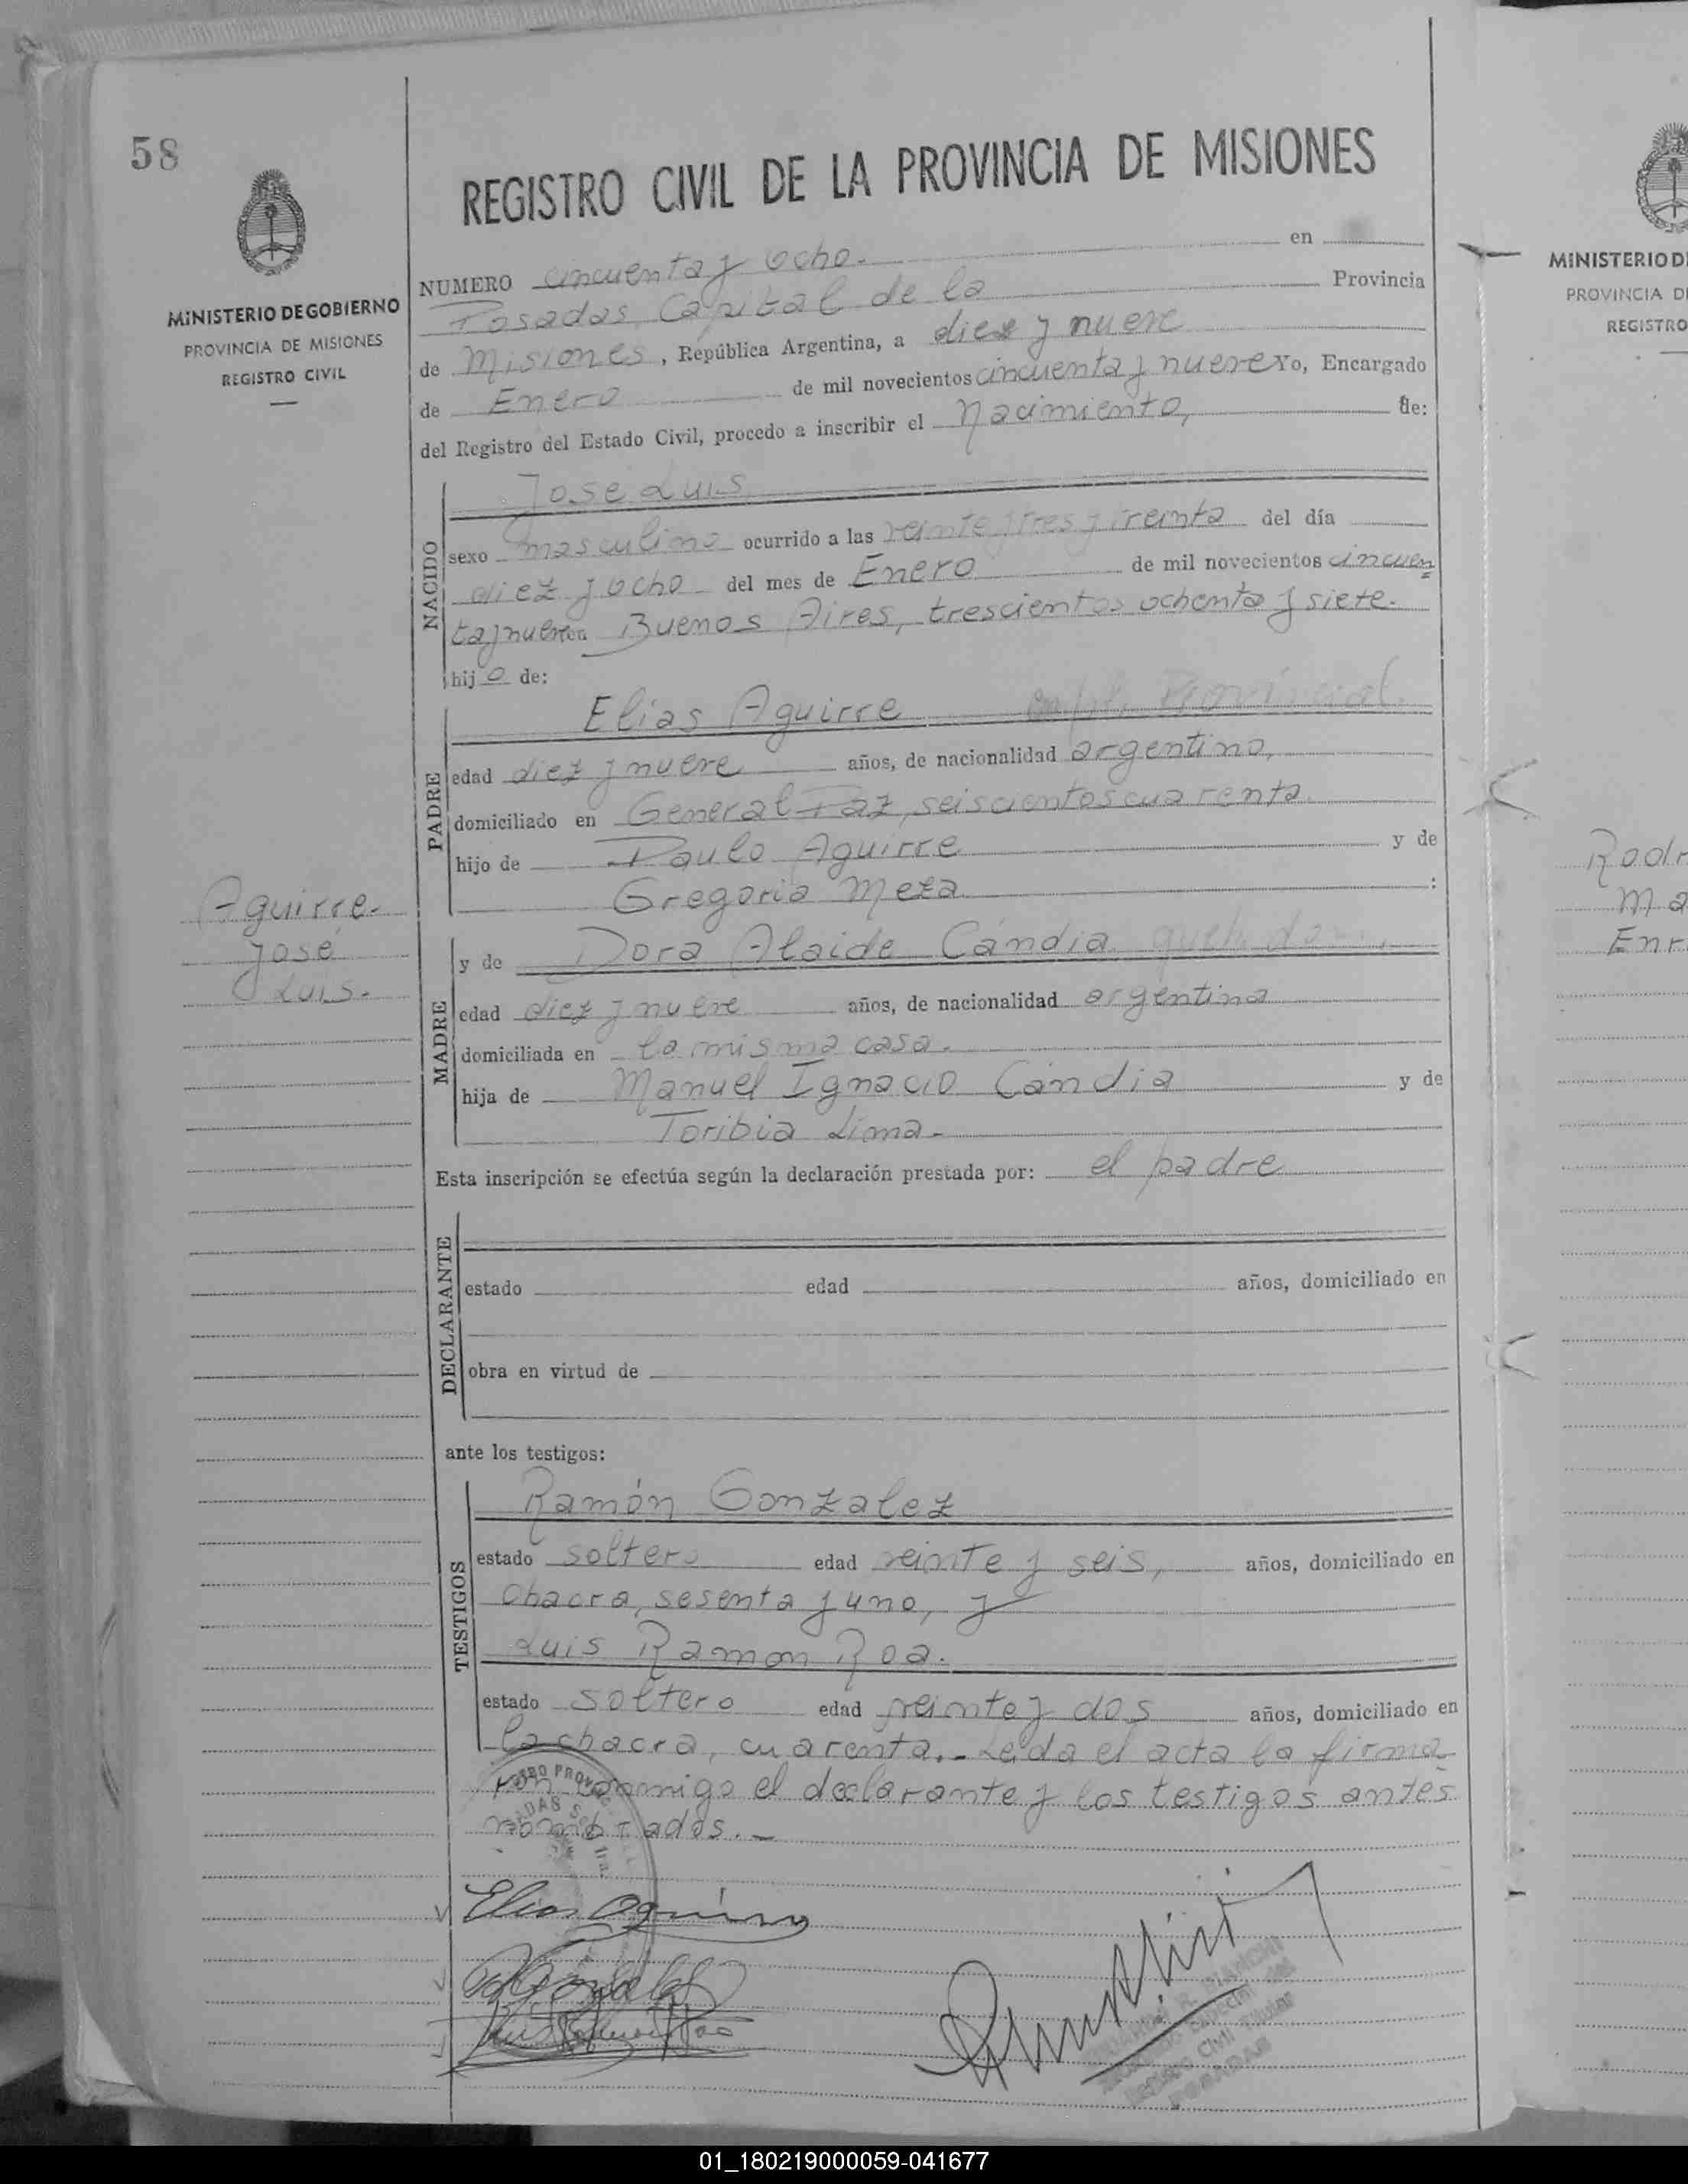 58
MINISTERIO DE GOBIERNO
PROVINCIA DE MISIONES
REGISTRO CIVIL
REGISTRO CIVIL DE LA PROVINCIA DE MISIONES
NUMERO cincuenta y ocho.- en
Posadas Capital de la Provincia
de Misiones, República Argentina, a diez y nueve
de Enero de mil novecientos cincuenta y nueve Yo, Encargado
del Registro del Estado Civil, procedo a inscribir el Nacimiento, de:
NACIDO
Jose Luis
sexo masculino ocurrido a las veinte y tres y treinta del día
diez y ocho del mes de Enero de mil novecientos cincuen
ta y nueve en Buenos Aires, trescientos ochenta y siete.
hijo de:
PADRE
Elias Aguirre empl. Provincial
edad diez y nueve años, de nacionalidad argentino,
domiciliado en General Paz, seiscientos cuarenta
hijo de Paulo Aguirre y de
Gregoria Meza :
MADRE
y de Dora Alaide Cándia
edad diez y nueve años, de nacionalidad argentina
domiciliada en la misma casa.
hija de Manuel Ignacio Cándia y de
Toribia Lima.-
Aguirre-
José
Luis.-
Esta inscripción se efectúa según la declaración prestada por: el padre
DECLARANTE
estado edad años, domiciliado en
obra en virtud de
ante los testigos:
TESTIGOS
Ramón Gonzalez
estado soltero edad veinte y seis, años, domiciliado en
Chacra, sesenta y uno, y
Luis Ramon Roa.
estado soltero edad veinte y dos años, domiciliado en
la chacra, cuarenta.- Leída el acta la firma
ron conmigo el declarante y los testigos antes
nombrados.-
Elias Aguirre
Registro Civil Titular
POSADAS
MINISTERIO D
PROVINCIA D
REGISTRO
Rodr
Ma
Enr
01_180219000059-041677